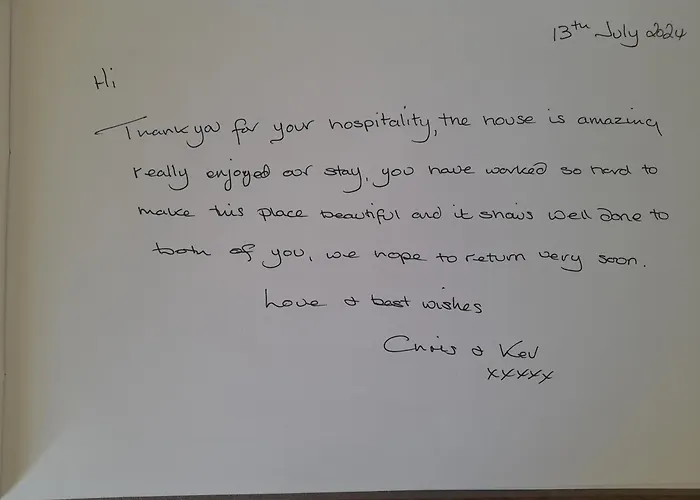 13th July 2024
Hi
Thankyou for your hospitality, the house is amazing
really enjoyed our stay, you have worked so hard to
make this place beautiful and it shows well done to
both of you, we hope to return very soon.
Love & best wishes
Chris & Kev
xxxxx